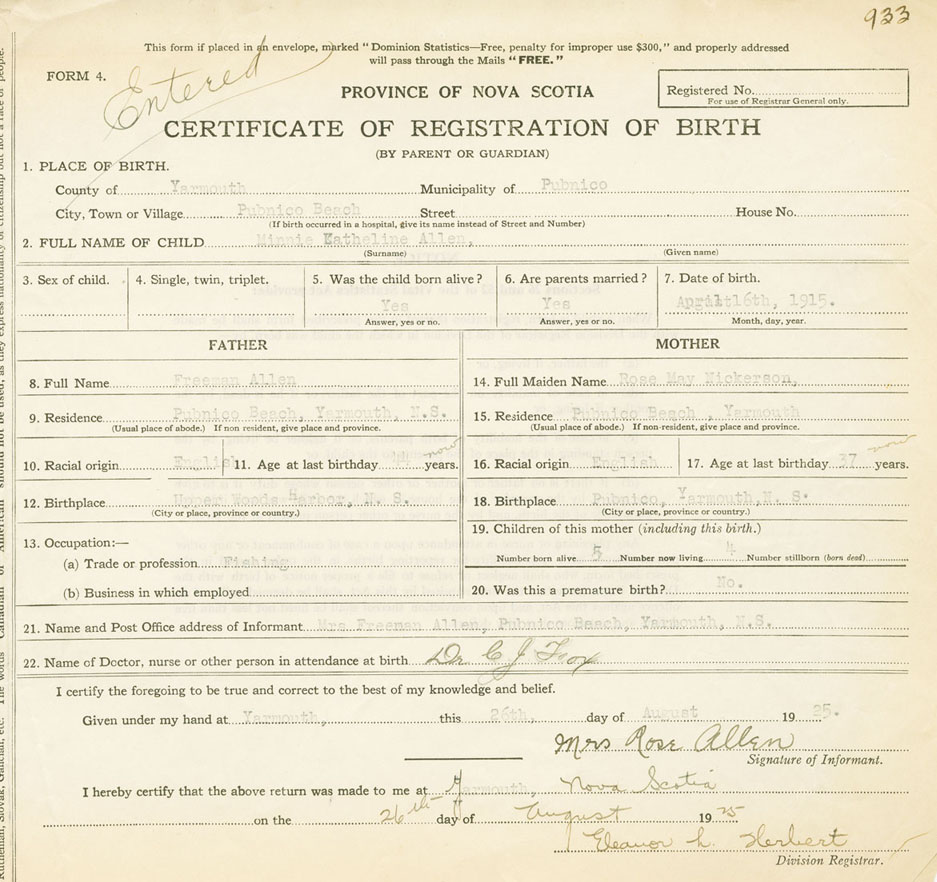 933
This form if placed in an envelope, marked “Dominion Statistics—Free, penalty for improper use $300,” and properly addressed
will pass through the Mails “FREE.”
FORM 4.
Entered
PROVINCE OF NOVA SCOTIA
Registered No.
For use of Registrar General only.
CERTIFICATE OF REGISTRATION OF BIRTH
(BY PARENT OR GUARDIAN)
1. PLACE OF BIRTH.
County of Yarmouth Municipality of Pubnico
City, Town or Village Pubnico Beach Street House No.
(If birth occurred in a hospital, give its name instead of Street and Number)
2. FULL NAME OF CHILD Minnie Katheline Allen,
(Surname) (Given name)
3. Sex of child. 4. Single, twin, triplet. 5. Was the child born alive? 6. Are parents married? 7. Date of birth.
Yes Yes April 16th, 1915.
Answer, yes or no. Answer, yes or no. Month, day, year.
FATHER MOTHER
8. Full Name Freeman Allen 14. Full Maiden Name Rose May Nickerson,
9. Residence Pubnico Beach, Yarmouth, N.S. 15. Residence Pubnico Beach , Yarmouth
(Usual place of abode.) If non resident, give place and province. (Usual place of abode.) If non-resident, give place and province.
now now
10. Racial origin English 11. Age at last birthday years. 16. Racial origin English 17. Age at last birthday 37 years.
12. Birthplace Upper Woods Harbor, N. S. 18. Birthplace Pubnico, Yarmouth, N. S.
(City or place, province or country.) (City or place, province or country.)
19. Children of this mother (including this birth.)
13. Occupation:—
Number born alive 5 Number now living 4 Number stillborn (born dead)
(a) Trade or profession Fishing
20. Was this a premature birth? No.
(b) Business in which employed
21. Name and Post Office address of Informant Mrs Freeman Allen, Pubnico Beach, Yarmouth, N.S.
22. Name of Doctor, nurse or other person in attendance at birth Dr C J Fox
I certify the foregoing to be true and correct to the best of my knowledge and belief.
Given under my hand at Yarmouth, this 26th, day of August 19 25.
Mrs Rose Allen
Signature of Informant.
I hereby certify that the above return was made to me at Yarmouth, Nova Scotia
on the 26th day of August 19 25
Eleanor L. Herbert
Division Registrar.